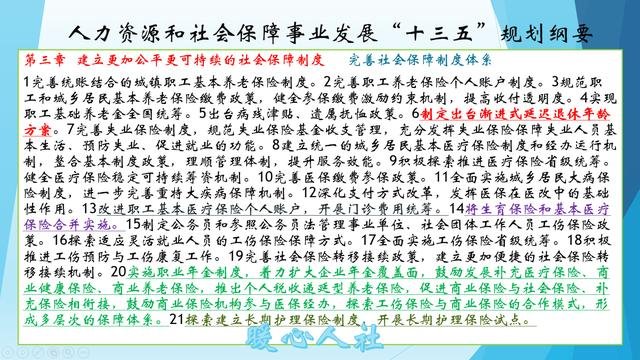 人力资源和社会保障事业发展“十三五”规划纲要
第三章 建立更加公平更可持续的社会保障制度 完善社会保障制度体系
1完善统账结合的城镇职工基本养老保险制度。2完善职工养老保险个人账户制度。3规范职
工和城乡居民基本养老保险缴费政策，健全参保缴费激励约束机制，提高收付透明度。4实现
职工基础养老金全国统筹。5出台病残津贴、遗属抚恤政策。6制定出台渐进式延迟退休年龄
方案。7完善失业保险制度，规范失业保险基金收支管理，充分发挥失业保险保障失业人员基
本生活、预防失业、促进就业的功能。8建立统一的城乡居民基本医疗保险制度和经办运行机
制，整合基本制度政策，理顺管理体制，提升服务效能。9积极探索推进医疗保险省级统筹。
健全医疗保险稳定可持续筹资机制。10完善医保缴费参保政策。11全面实施城乡居民大病保
险制度，进一步完善重特大疾病保障机制。12深化支付方式改革，发挥医保在医改中的基础
性作用。13改进职工基本医疗保险个人账户，开展门诊费用统筹。14将生育保险和基本医疗
保险合并实施。15制定公务员和参照公务员法管理事业单位、社会团体工作人员工伤保险政
策。16探索适应灵活就业人员的工伤保险保障方式。17全面实施工伤保险省级统筹。18积极
推进工伤预防与工伤康复工作。19完善社会保险转移接续政策，建立更加便捷的社会保险转
移接续机制。20实施职业年金制度，着力扩大企业年金覆盖面，鼓励发展补充医疗保险、商
业健康保险、商业养老保险，推出个人税收递延型养老保险，促进商业保险与社会保险、补
充保险相衔接，鼓励商业保险机构参与医保经办，探索工伤保险与商业保险的合作模式，形
成多层次的保障体系。21探索建立长期护理保险制度，开展长期护理保险试点。
暖心人社